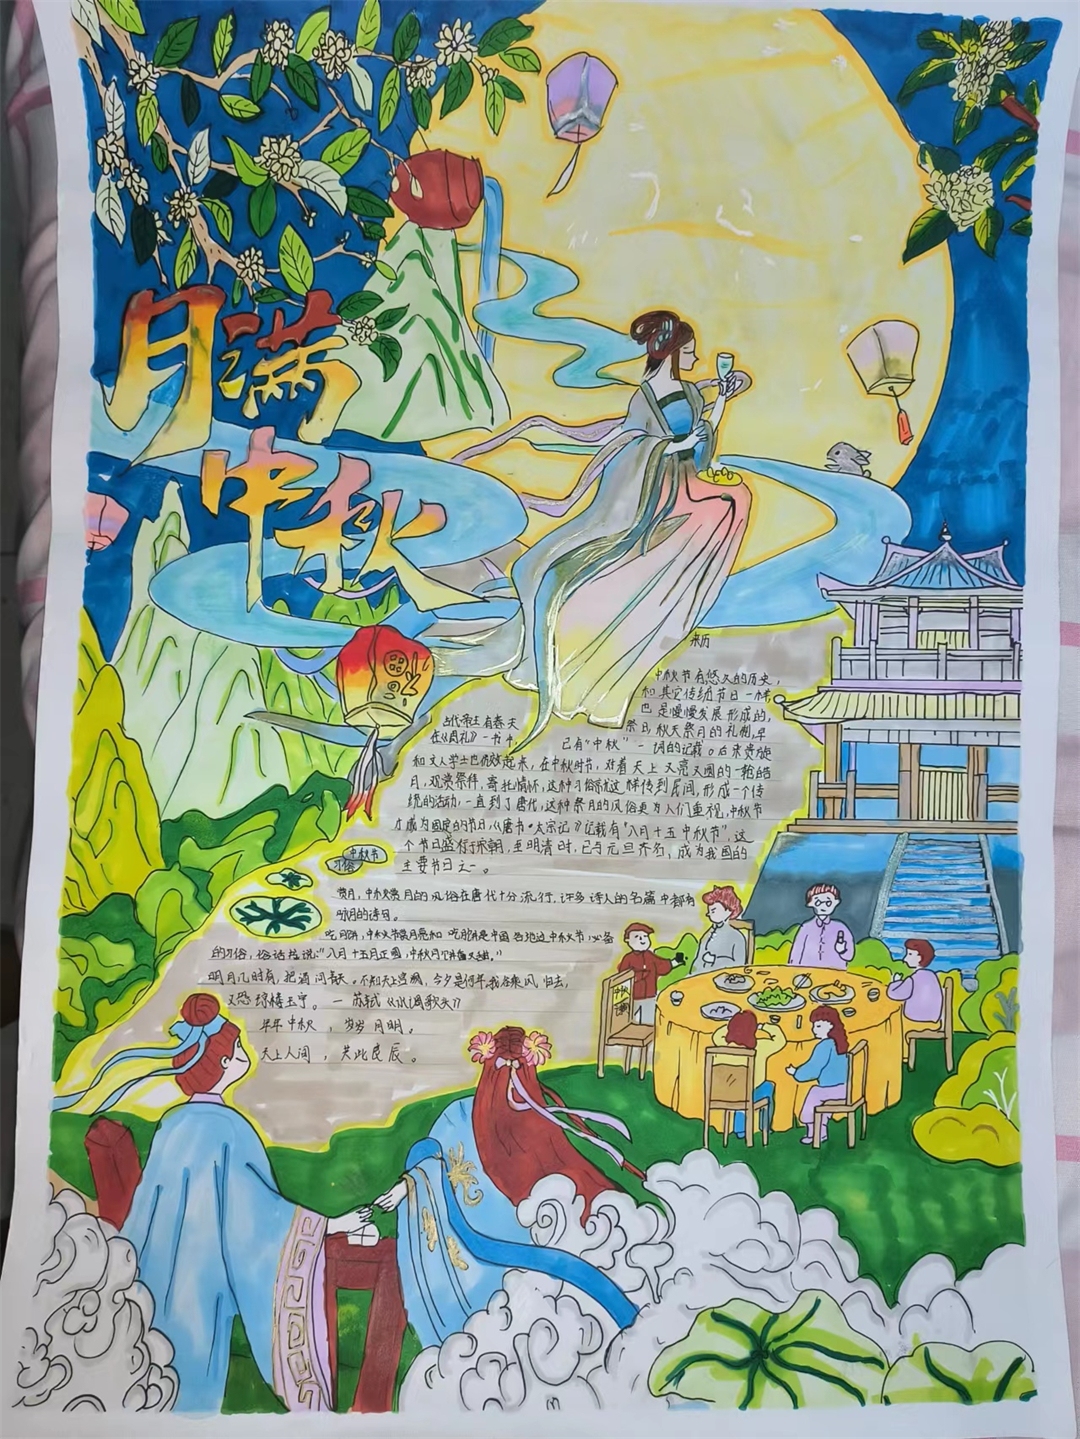 月满
中秋
来历
中秋节有悠久的历史，
和其它传统节日一样
也是慢慢发展形成的，
古代帝王有春天祭日，秋天祭月的礼制，早
在《周礼》一书中，已有“中秋”一词的记载。后来贵族
和文人学士也仿效起来，在中秋时节，对着天上又亮又圆的一轮皓
月，观赏祭拜，寄托情怀，这种习俗就这样传到民间，形成一个传
统的活动，一直到了唐代，这种祭月的风俗更为人们重视，中秋节
才成为固定的节日，《唐书·太宗记》记载有“八月十五中秋节”，这
个节日盛行于宋朝，至明清时，已与元旦齐名，成为我国的
主要节日之一。
中秋节
习俗
赏月，中秋赏月的风俗在唐代十分流行，许多诗人的名篇中都有
咏月的诗句。
吃月饼，中秋节赏月亮和吃月饼是中国各地过中秋节，必备
的习俗，俗话说：“八月十五月正圆，中秋月饼香又甜。”
明月几时有，把酒问青天，不知天上宫阙，今夕是何年，我欲乘风归去，
又恐琼楼玉宇。—苏轼《水调歌头》
年年中秋，岁岁月明。
天上人间，共此良辰。